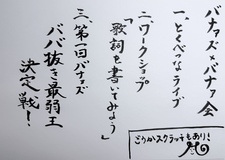 バナナズ×バナナ会
一、とくべつなライブ
二、ワークショップ
「歌詞を書いてみよう」
三、第一回バナナズ
ババ抜き最弱王
決定戦!
ごうかスクラッチもあり!